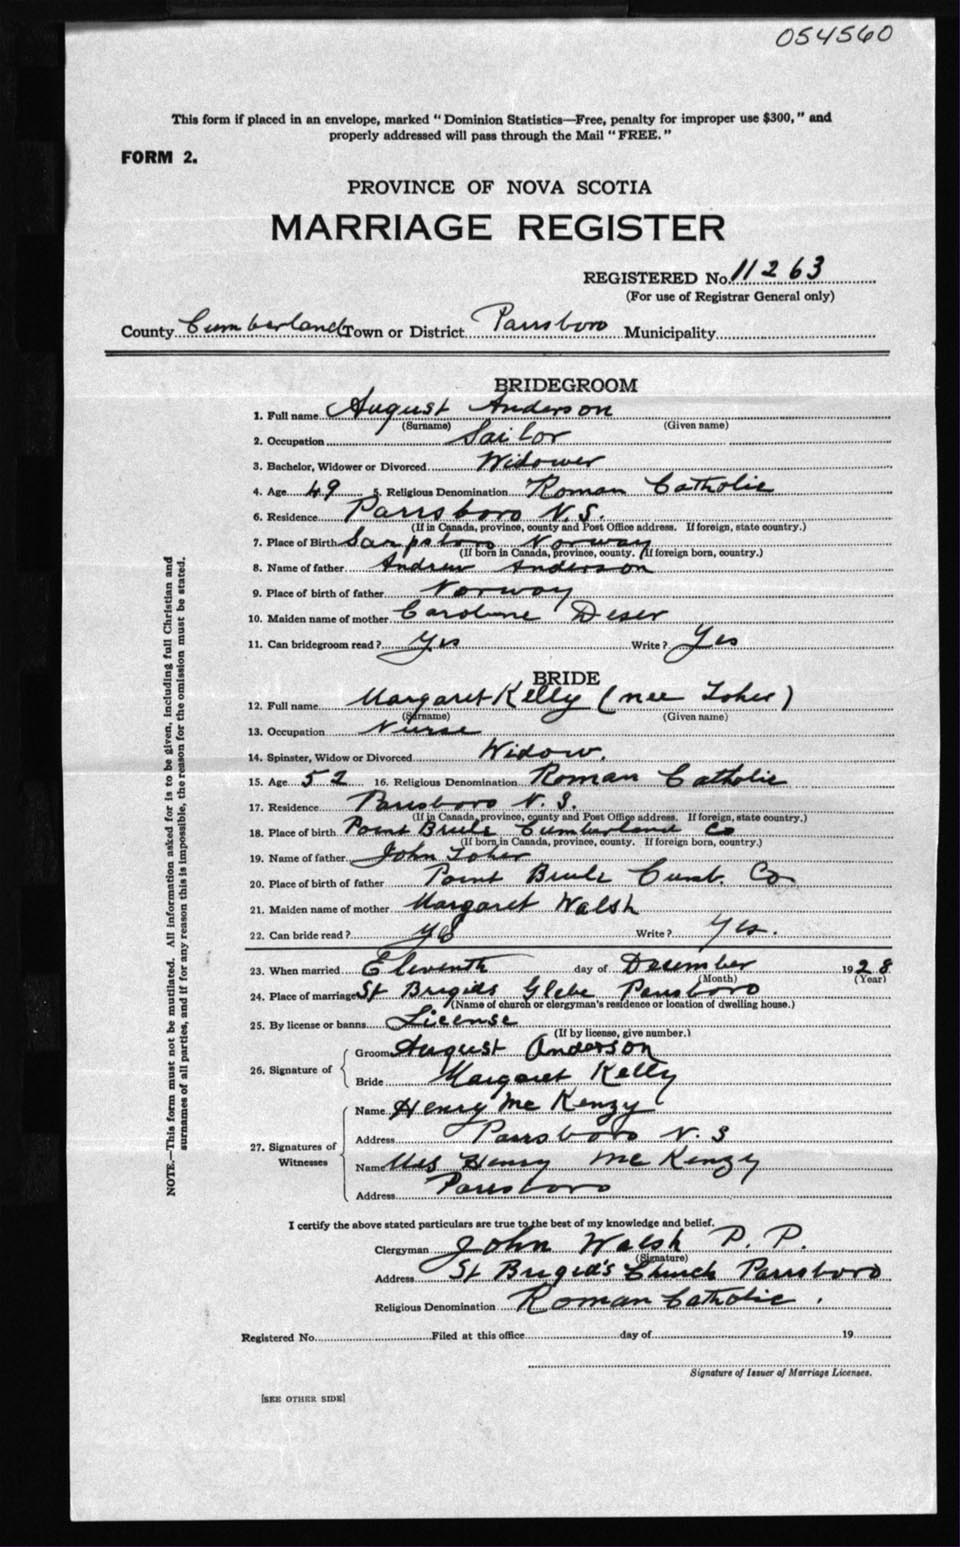 054560
This form if placed in an envelope, marked "Dominion Statistics—Free, penalty for improper use $300," and
properly addressed will pass through the Mail "FREE."
FORM 2.
PROVINCE OF NOVA SCOTIA
MARRIAGE REGISTER
REGISTERED No. 11263
(For use of Registrar General only)
County Cumberland Town or District Parrsboro Municipality
BRIDEGROOM
1. Full name August Anderson
(Surname) (Given name)
2. Occupation Sailor
3. Bachelor, Widower or Divorced Widower
4. Age 49 5. Religious Denomination Roman Catholic
6. Residence Parrsboro N.S.
(If in Canada, province, county and Post Office address. If foreign, state country.)
7. Place of Birth Norway
(If born in Canada, province, county. If foreign born, country.)
8. Name of father Andrew Anderson
9. Place of birth of father Norway
10. Maiden name of mother Caroline
11. Can bridegroom read? Yes Write? Yes
BRIDE
12. Full name Margaret Kelly (nee Toher)
(Surname) (Given name)
13. Occupation Nurse
14. Spinster, Widow or Divorced Widow.
15. Age 52 16. Religious Denomination Roman Catholic
17. Residence Parrsboro N.S.
(If in Canada, province, county and Post Office address. If foreign, state country.)
18. Place of birth Point Brule Cumberland Co
(If born in Canada, province, county. If foreign born, country.)
19. Name of father John Toher
20. Place of birth of father Point Brule Cumb. Co
21. Maiden name of mother Margaret Walsh
22. Can bride read? Yes Write? Yes.
23. When married Eleventh day of December 1928
(Month) (Year)
24. Place of marriage St Brigids Glebe Parrsboro
(Name of church or clergyman's residence or location of dwelling house.)
25. By license or banns License
(If by license, give number.)
26. Signature of
Groom August Anderson
Bride Margaret Kelly
27. Signatures of Witnesses
Name Henry Mc Kenzy
Address Parrsboro N.S
Name Mrs Henry Mc Kenzy
Address Parrsboro
I certify the above stated particulars are true to the best of my knowledge and belief.
Clergyman John Walsh P.P.
(Signature)
Address St Brigid's Church Parrsboro
Religious Denomination Roman Catholic.
Registered No. Filed at this office day of 19
Signature of Issuer of Marriage Licenses.
[SEE OTHER SIDE]
NOTE.—This form must not be mutilated. All information asked for is to be given, including full Christian and
surnames of all parties, and if for any reason this is impossible, the reason for the omission must be stated.